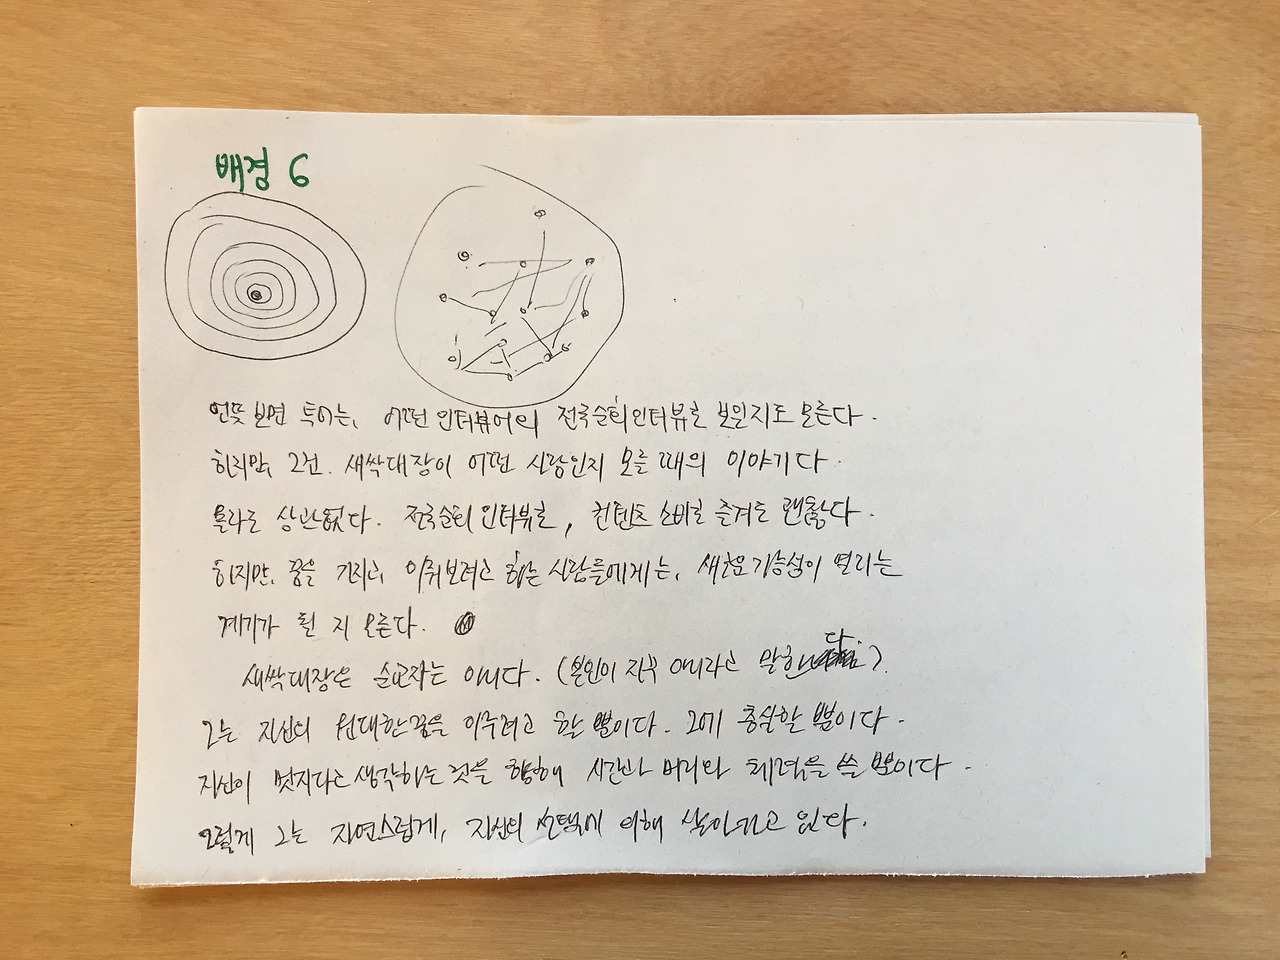 배경 6
언뜻 보면 투어는, 어떤 인터뷰어의 전국순회인터뷰로 보일지도 모른다.
하지만, 그건 새싹대장이 어떤 사람인지 모를 때의 이야기다.
몰라도 상관없다. 전국순회 인터뷰로, 컨텐츠 소비로 즐겨도 괜찮다.
하지만, 꿈을 가지고, 이뤄보려고 하는 사람들에게는, 새로운 가능성이 열리는
계기가 될 지 모른다.
새싹대장은 순교자는 아니다. (본인이 자꾸 아니라고 말한다).
그는 자신의 원대한 꿈을 이루려고 할 뿐이다. 그에 충실할 뿐이다.
자신이 멋지다고 생각하는 것을 향해 시간과 머리와 체력을 쓸 뿐이다.
그렇게 그는 자연스럽게, 자신의 선택에 의해 살아가고 있다.